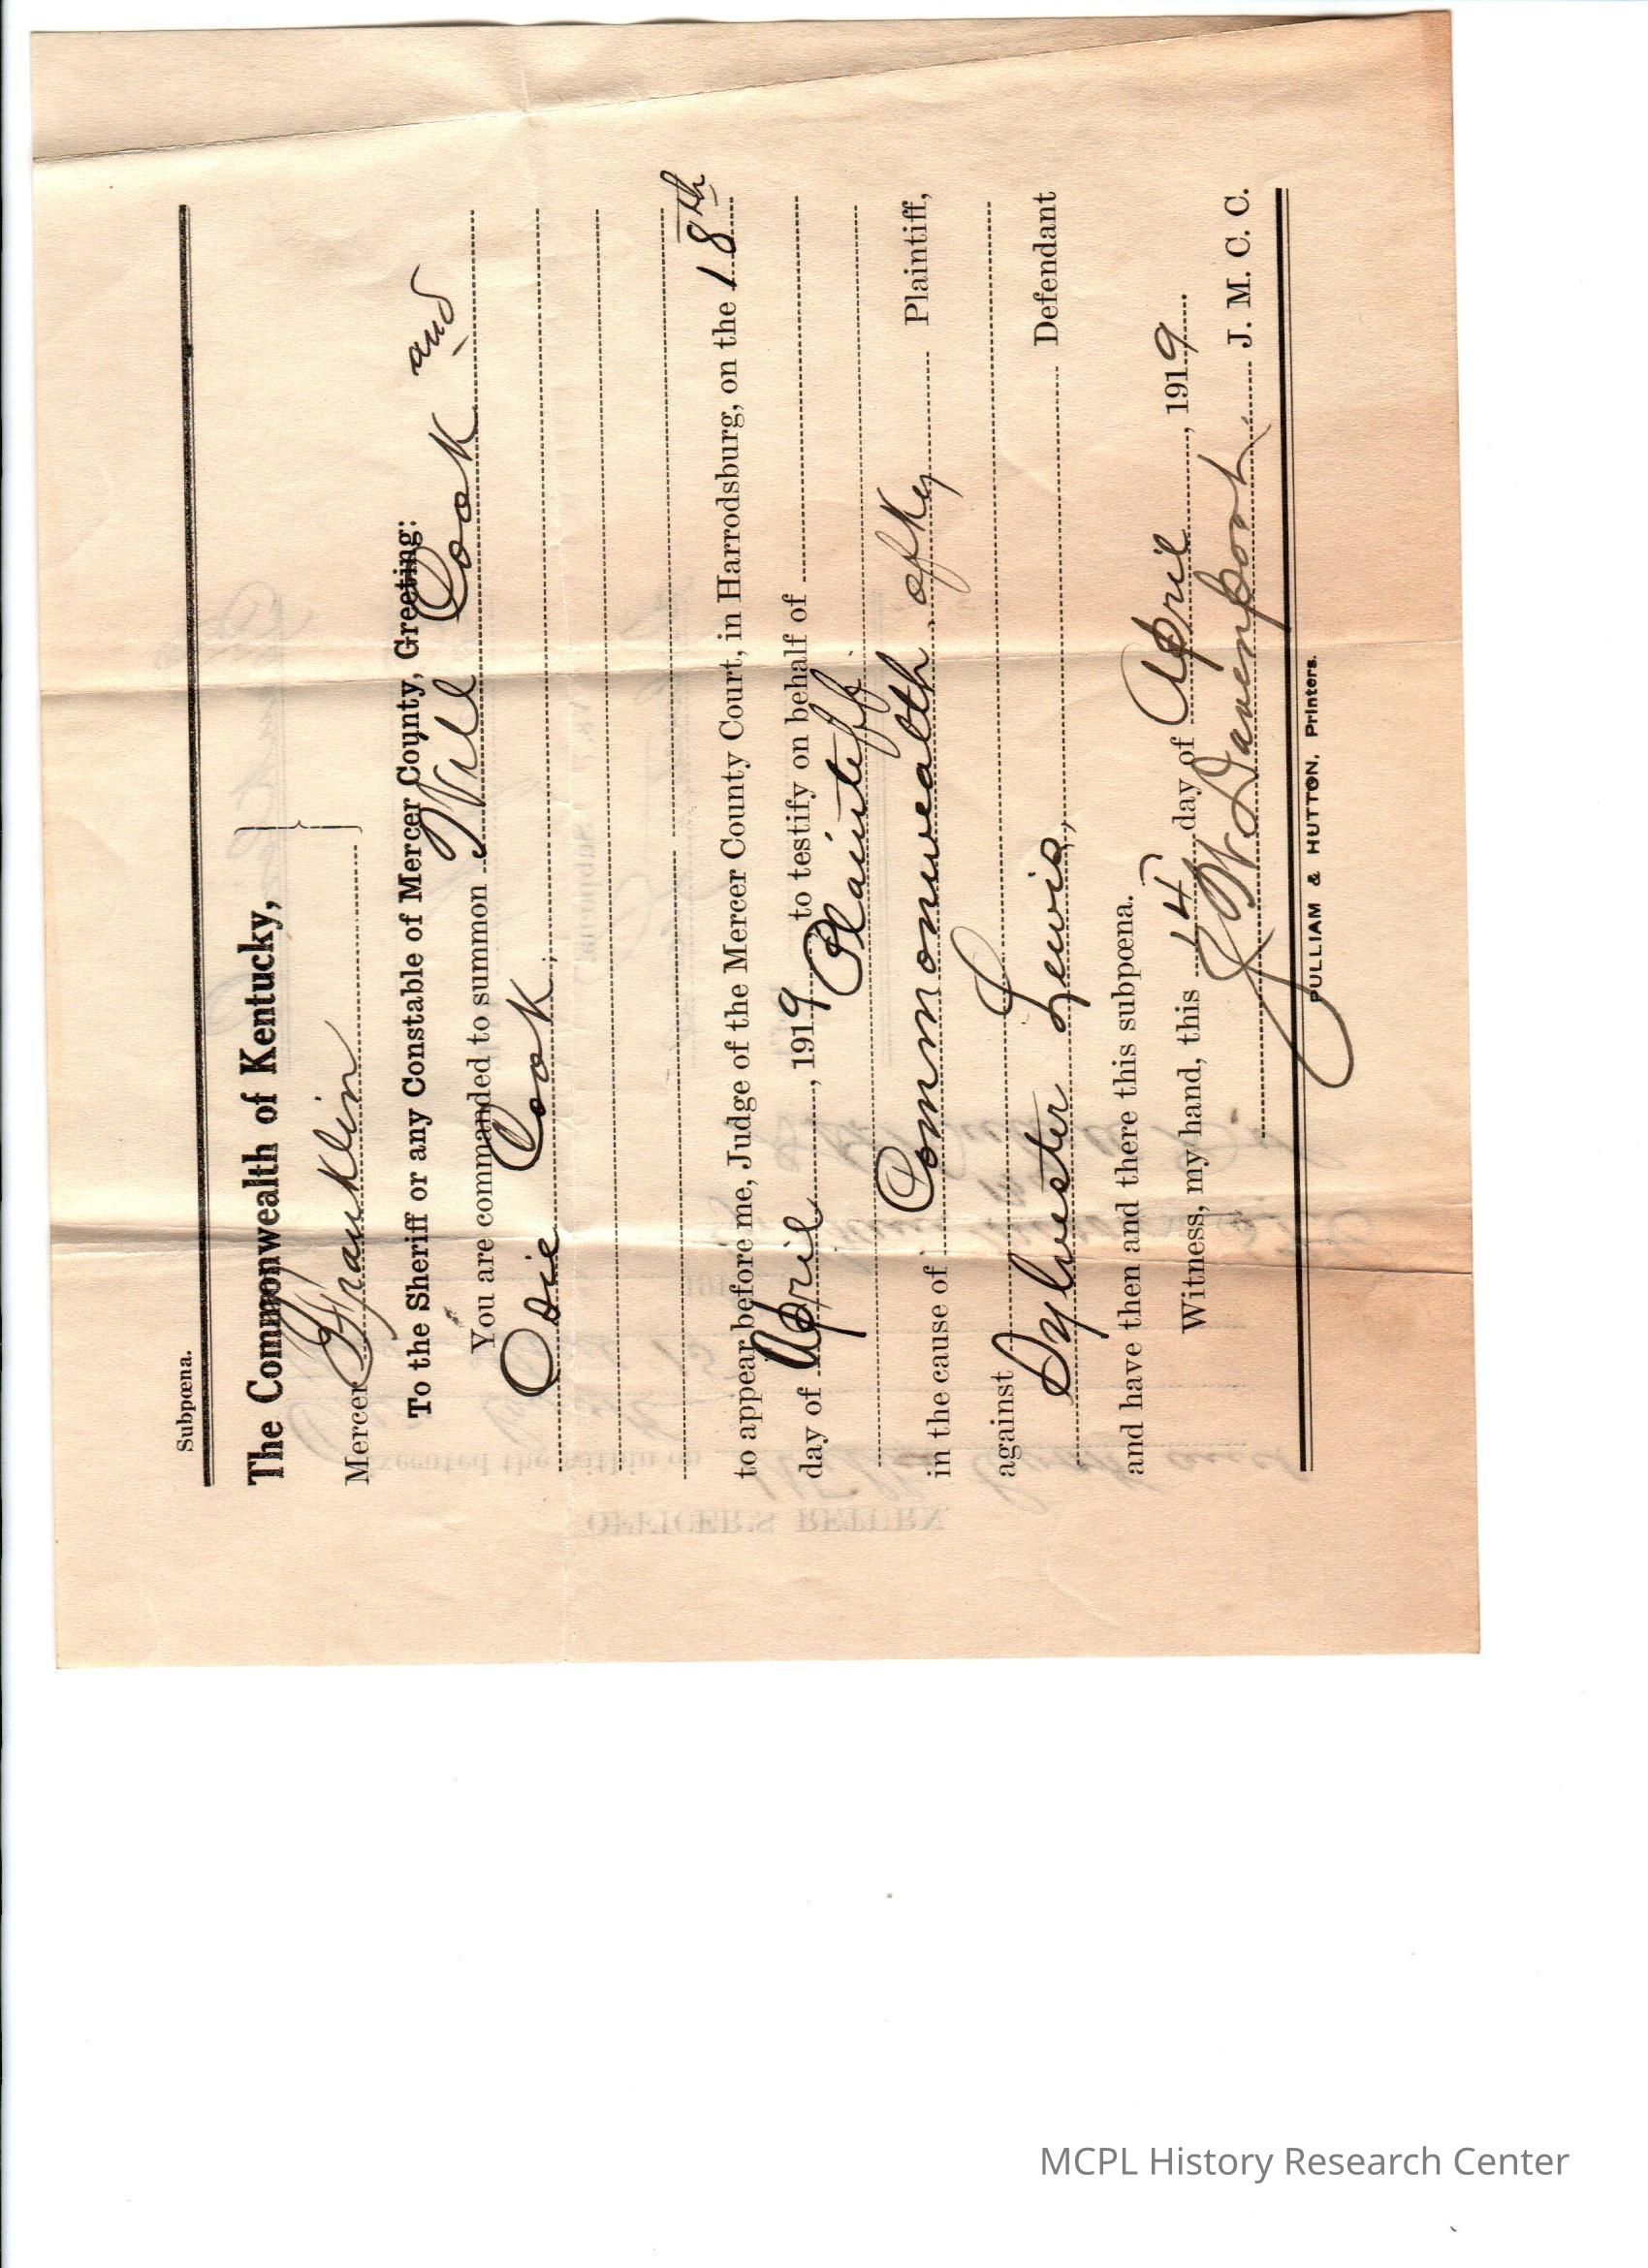 Subpœna.
The Commonwealth of Kentucky,
Mercer Franklin
To the Sheriff or any Constable of Mercer County, Greeting:
You are commanded to summon Will Cook and
Osie Cook,
to appear before me, Judge of the Mercer County Court, in Harrodsburg, on the 18th
day of April, 1919 to testify on behalf of
Plaintiff
in the cause of Commonwealth of Ky Plaintiff,
against
Sylvester Lewis, Defendant
and have then and there this subpœna.
Witness, my hand, this 14 day of April, 1919.
Davenport J. M. C. C.
PULLIAM & HUTTON, Printers.
OFFICER'S RETURN
executed the within on
MCPL History Research Center